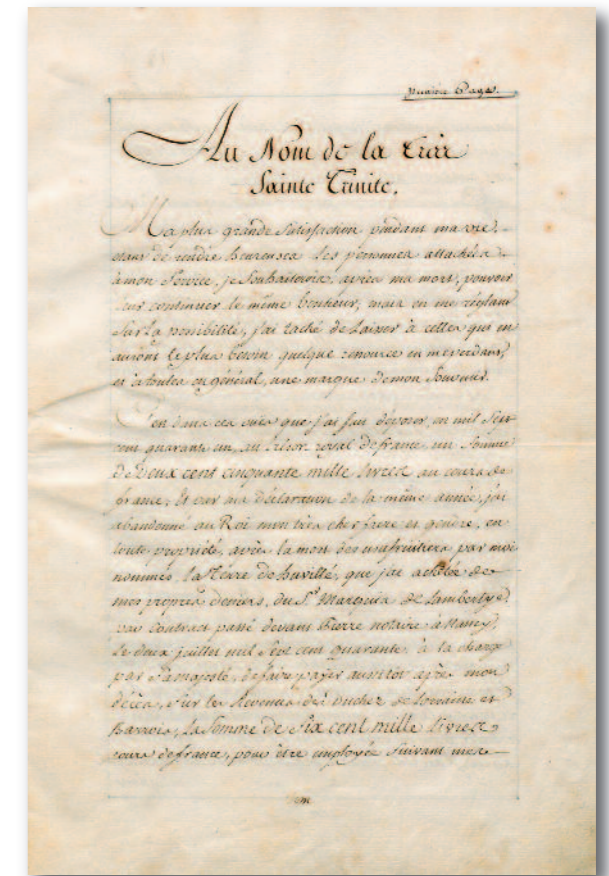 Pages.
Au Nom de la Très
Sainte Trinité.
Ma plus grande Satisfaction pendant ma vie,
étant de rendre heureuses les personnes attachées
à mon Service, je Souhaiterois, après ma mort, pouvoir
leur continuer le même bonheur, mais en me réglant
Sur la possibilité, j'ai taché de laisser à celles qui en
auront le plus besoin quelque ressource en me perdant,
et à toutes en général, une marque de mon Souvenir.
C'est dans ces vuës que j'ai fait déposer, en mil Sept
cent quarante un, au trésor royal de france un Somme
de Deux cent cinquante mille livres au cours de
france, Et par ma Déclaration de la même année, j'ai
abandonné au Roi mon très cher frere et gendre, en
toute propriété, après la mort des usufruitiers par moi
nommés, la Terre de huvillé, que j'ai achetée de
mes propres deniers, du S.r Marquis de Lambertye,
par Contract passé devant Pierre notaire à Nancy,
Le deux juillet mil Sept cent quarante, à la charge
par Sa majesté, de faire payer aussitôt après mon
décès, Sur les Revenus des Duchez de Lorraine et
Barrois, la Somme de Six cent mille livres
cours de france, pour être employée Suivant mes